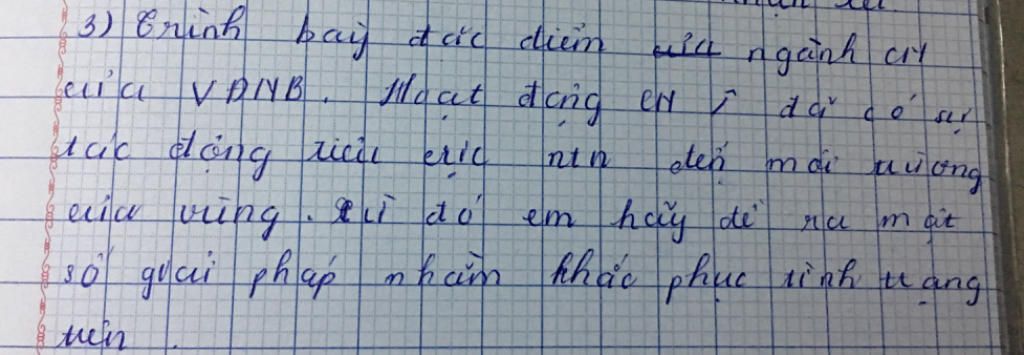 3) Trình bày đặc điểm của ngành CN
của VĐNB. Hoạt động CN ở đó có sự
tác động tiêu cực ntn đến môi trường
của vùng. Từ đó em hãy đề ra một
số giải pháp nhằm khắc phục tình trạng
trên.